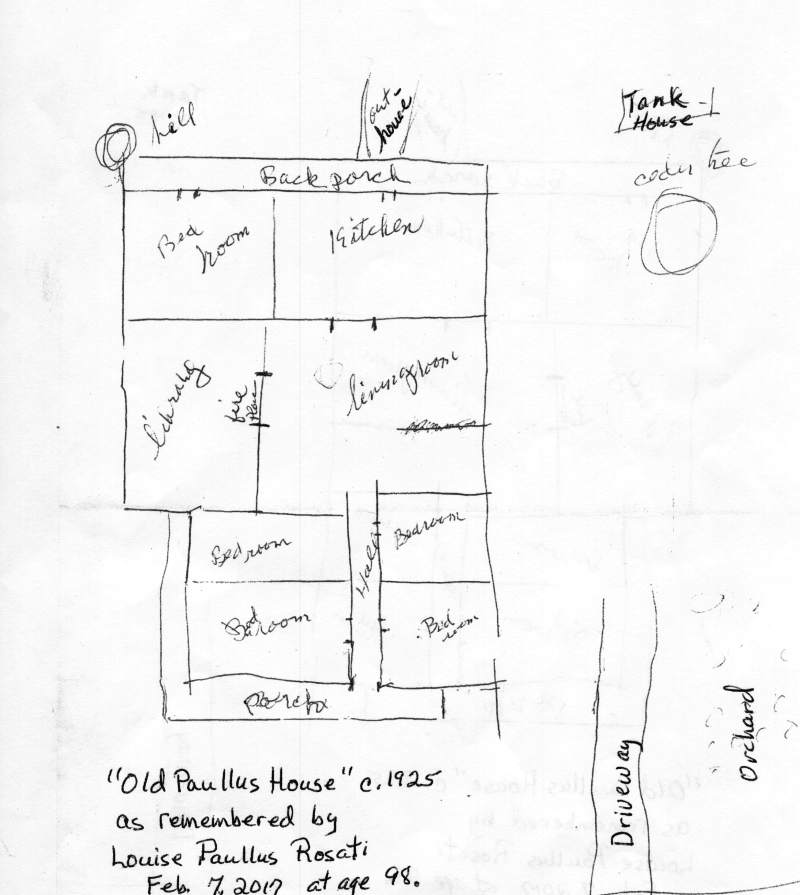 out-
house
Tank
House
cedar tree
Back porch
Bed
room
Kitchen
fire
place
Bedroom
Hall
Bedroom
Bedroom
Bed
room
Porch
Driveway
Orchard
"Old Paullus House" c. 1925
as remembered by
Louise Paullus Rosati
Feb. 7, 2017 at age 98.